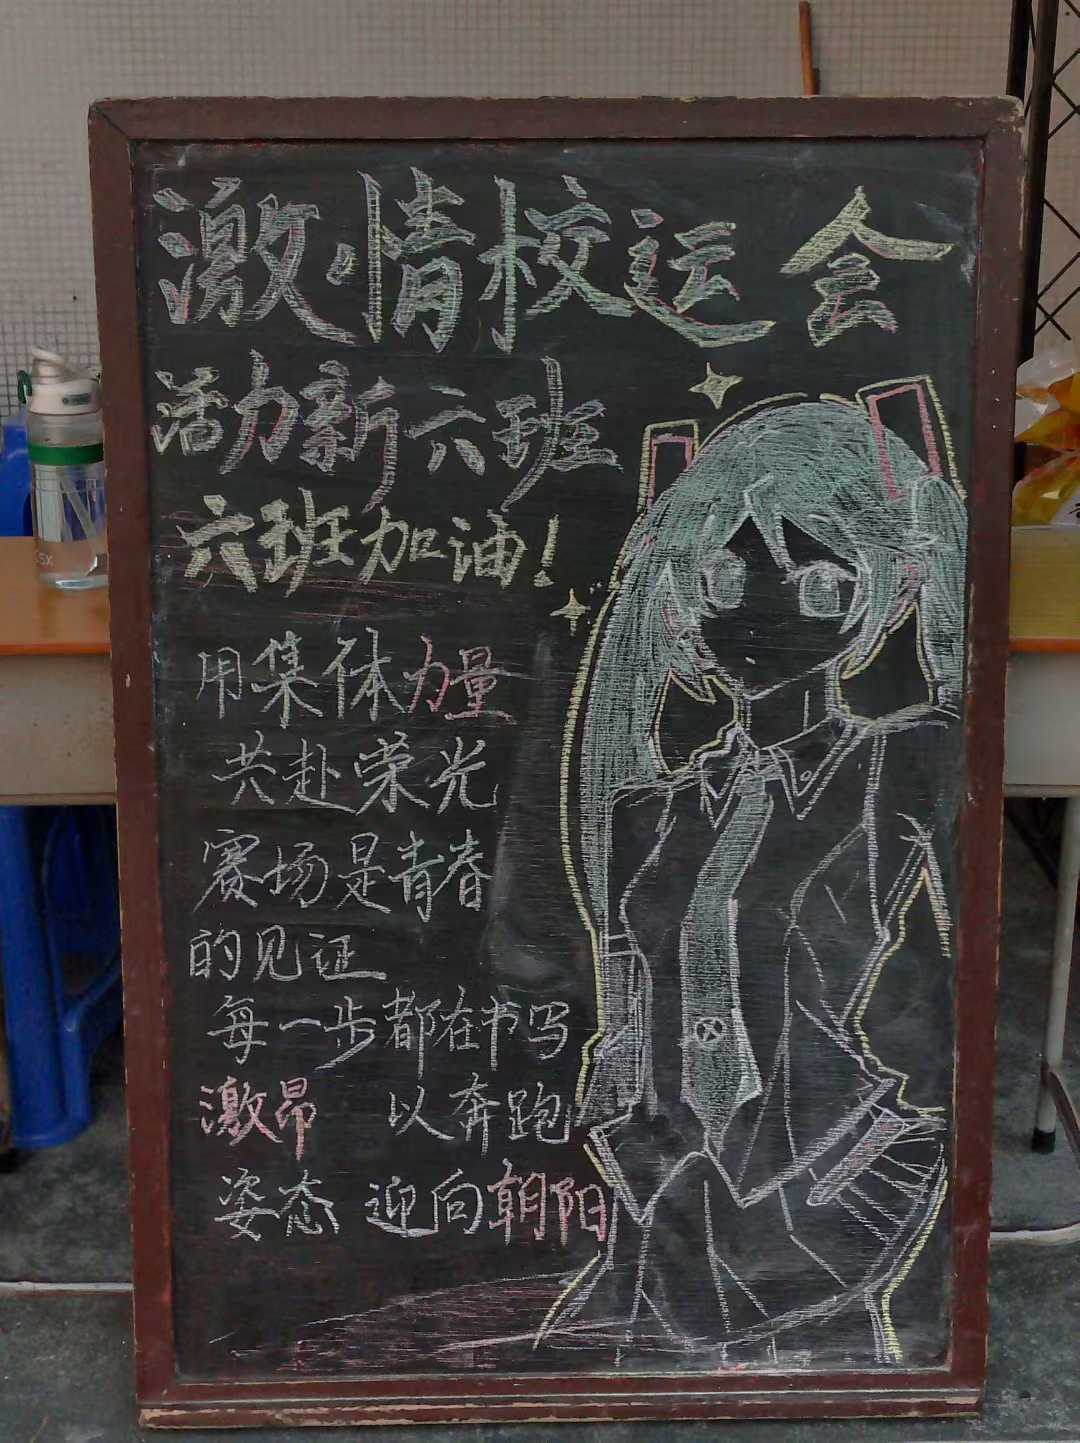 激情校运会
活力新六班
六班加油！
用集体力量
共赴荣光
赛场是青春
的见证
每一步都在书写
激昂 以奔跑
姿态 迎向朝阳